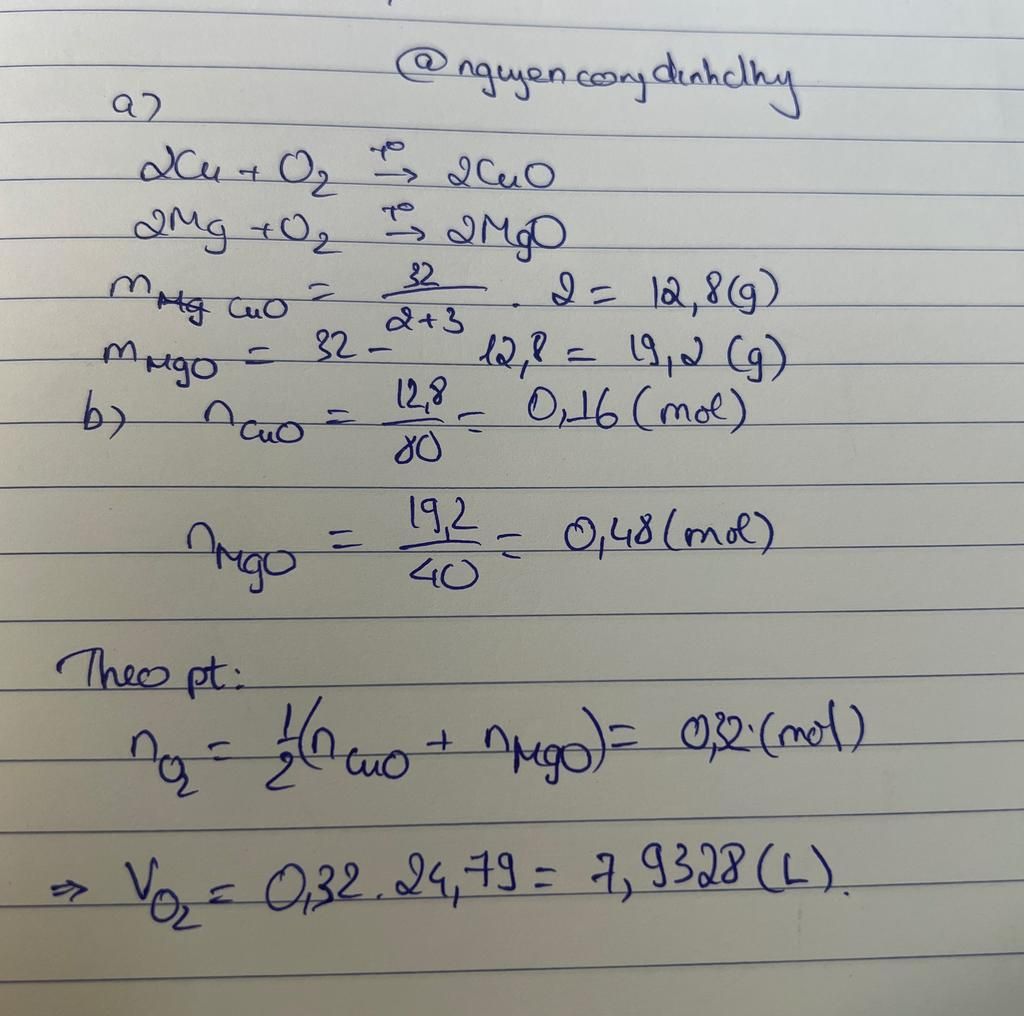 @nguyencongdinhclhy
a)
2Cu + O₂ →(t°) 2CuO
2Mg + O₂ →(t°) 2MgO
m CuO = 32/(2+3) . 2 = 12,8(g)
m MgO = 32 - 12,8 = 19,2 (g)
b) n CuO = 12,8/80 = 0,16 (mol)
n MgO = 19,2/40 = 0,48 (mol)
Theo pt:
n O₂ = 1/2(n CuO + n MgO) = 0,32 (mol)
⇒ V O₂ = 0,32 . 24,79 = 7,9328 (L).